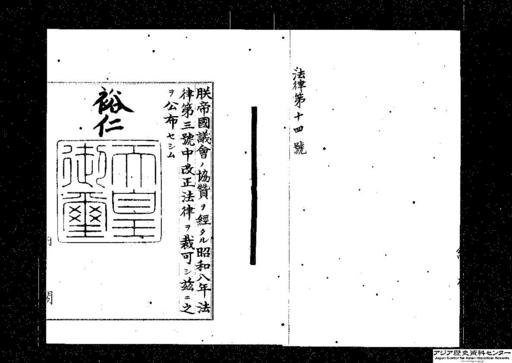 法律第十四號
朕帝國議會ノ協賛ヲ經タル昭和八年法
律第三號中改正法律ヲ裁可シ茲ニ之
ヲ公布セシム
裕仁
天皇
御璽
内閣
アジア歴史資料センター
Japan Center for Asian Historical Records